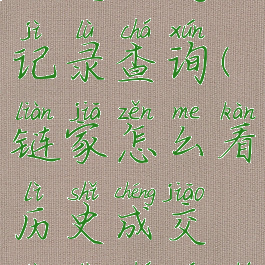 jì lù chá xún
记录查询(
liàn jiā zěn me kàn
链家怎么看
lì shǐ chéng jiāo
历史成交